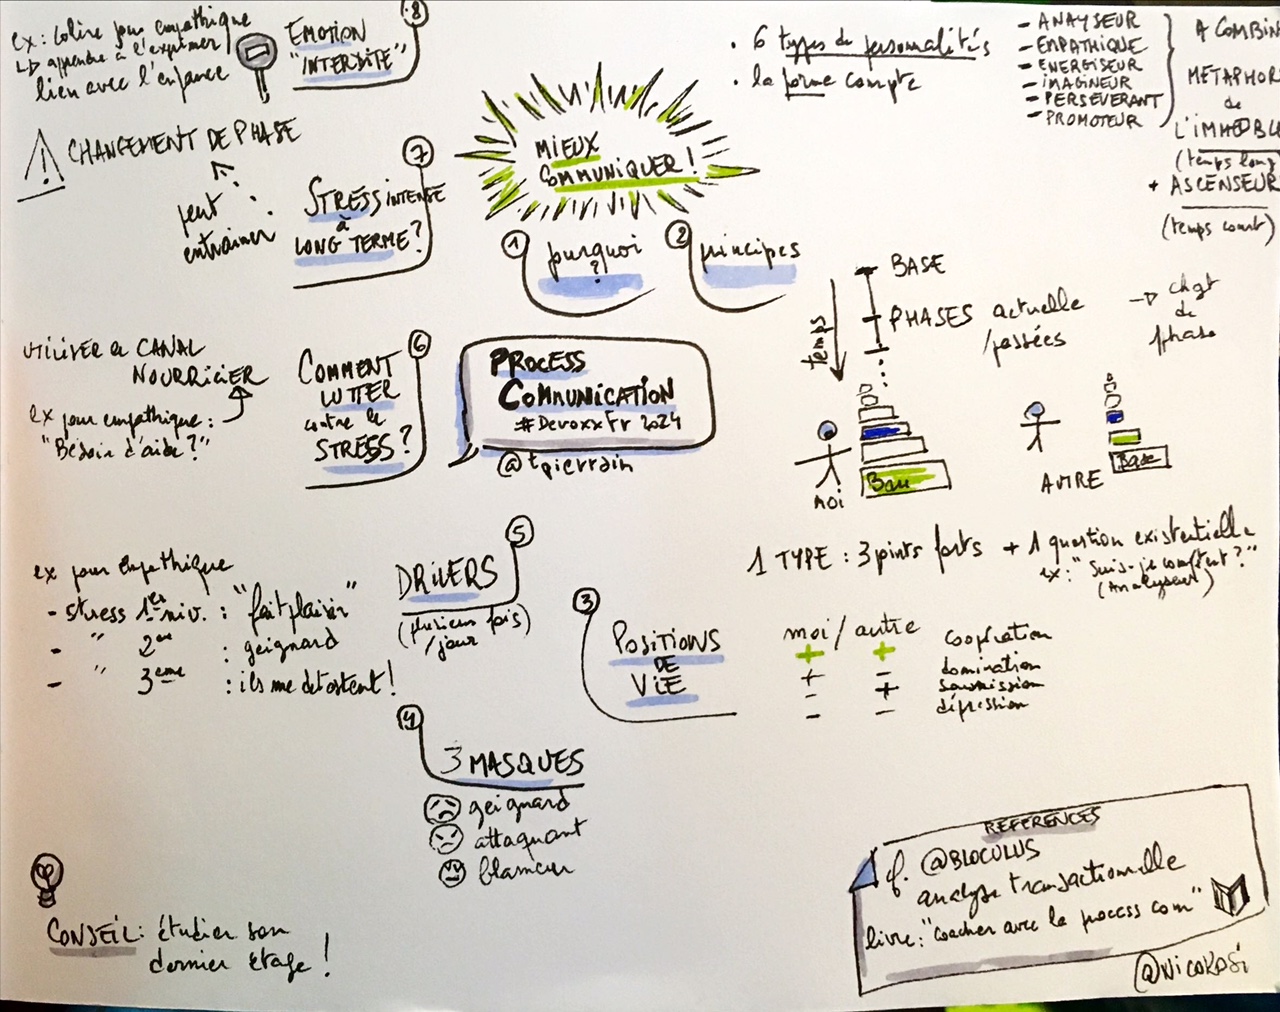 MIEUX
COMMUNIQUER !
PROCESS
COMMUNICATION
#DevoxxFr 2024
@tpierrain
1 pourquoi
?
2 principes
. 6 types de personnalités
. la forme compte
- ANAYSEUR
- EMPATHIQUE
- ENERGISEUR
- IMAGINEUR
- PERSEVERANT
- PROMOTEUR
A COMBIN
METAPHOR
de
L'IMMEUBL
(temps long
+ ASCENSEUR
(temps court)
temps
BASE
PHASES actuelle
/passées
→ chgt
de
phase
MOI
Base
AUTRE
Base
1 TYPE : 3 points forts + 1 question existentielle
ex: "Suis-je compétent ?"
(Analyseur)
3 POSITIONS
DE
VIE
moi / autre
+ + coopération
+ - domination
- + soumission
- - dépression
4
3 MASQUES
geignard
attaquant
blameur
5
DRIVERS
(plusieurs fois)
/jour
ex pour Empathique
- stress 1er niv. : "fait plaisir"
- " 2eme : geignard
- " 3eme : ils me detestent !
6
COMMENT
LUTTER
contre le
STRESS ?
UTILISER le CANAL
NOURRICIER
ex pour empathique :
"Besoin d'aide ?"
7
STRESS INTENSE
à
LONG TERME ?
peut
entrainer
CHANGEMENT DE PHASE
8
EMOTION
"INTERDITE"
ex : colère pour empathique
↳ apprendre à l'exprimer
lien avec l'enfance
CONSEIL : étudier son
dernier étage !
REFERENCES
cf. @BLOCULUS
analyse transactionnelle
livre : "coacher avec la process com"
@NICOKOSI